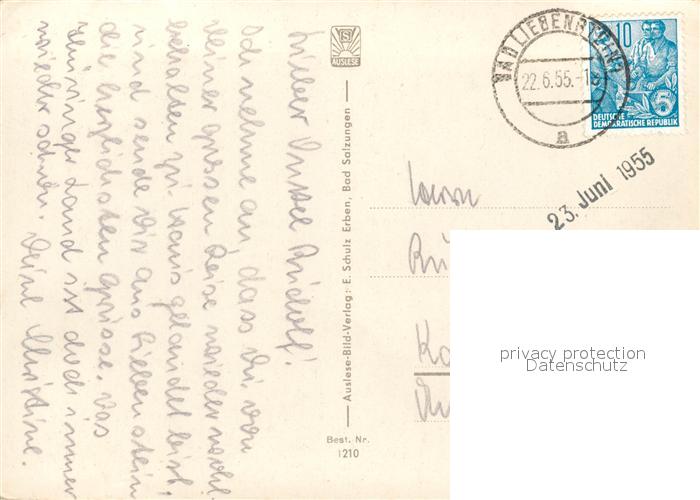 Lieber Onkel Rudolf!
Ich nehme an, dass Du von
Deiner grossen Reise wieder wohl-
behalten zu Haus gelandet bist,
und sende Dir aus Liebenstein
die herzlichsten Grüsse. Das
Thüringer Land ist doch immer
wieder schön. Deine Christine.
AUSLESE
Auslese-Bild-Verlag: E. Schulz Erben, Bad Salzungen
Best. Nr.
1210
BAD LIEBENSTEIN
22.6.55.-18
a
10
5
DEUTSCHE
DEMOKRATISCHE REPUBLIK
23. Juni 1955
Herrn
privacy protection
Datenschutz